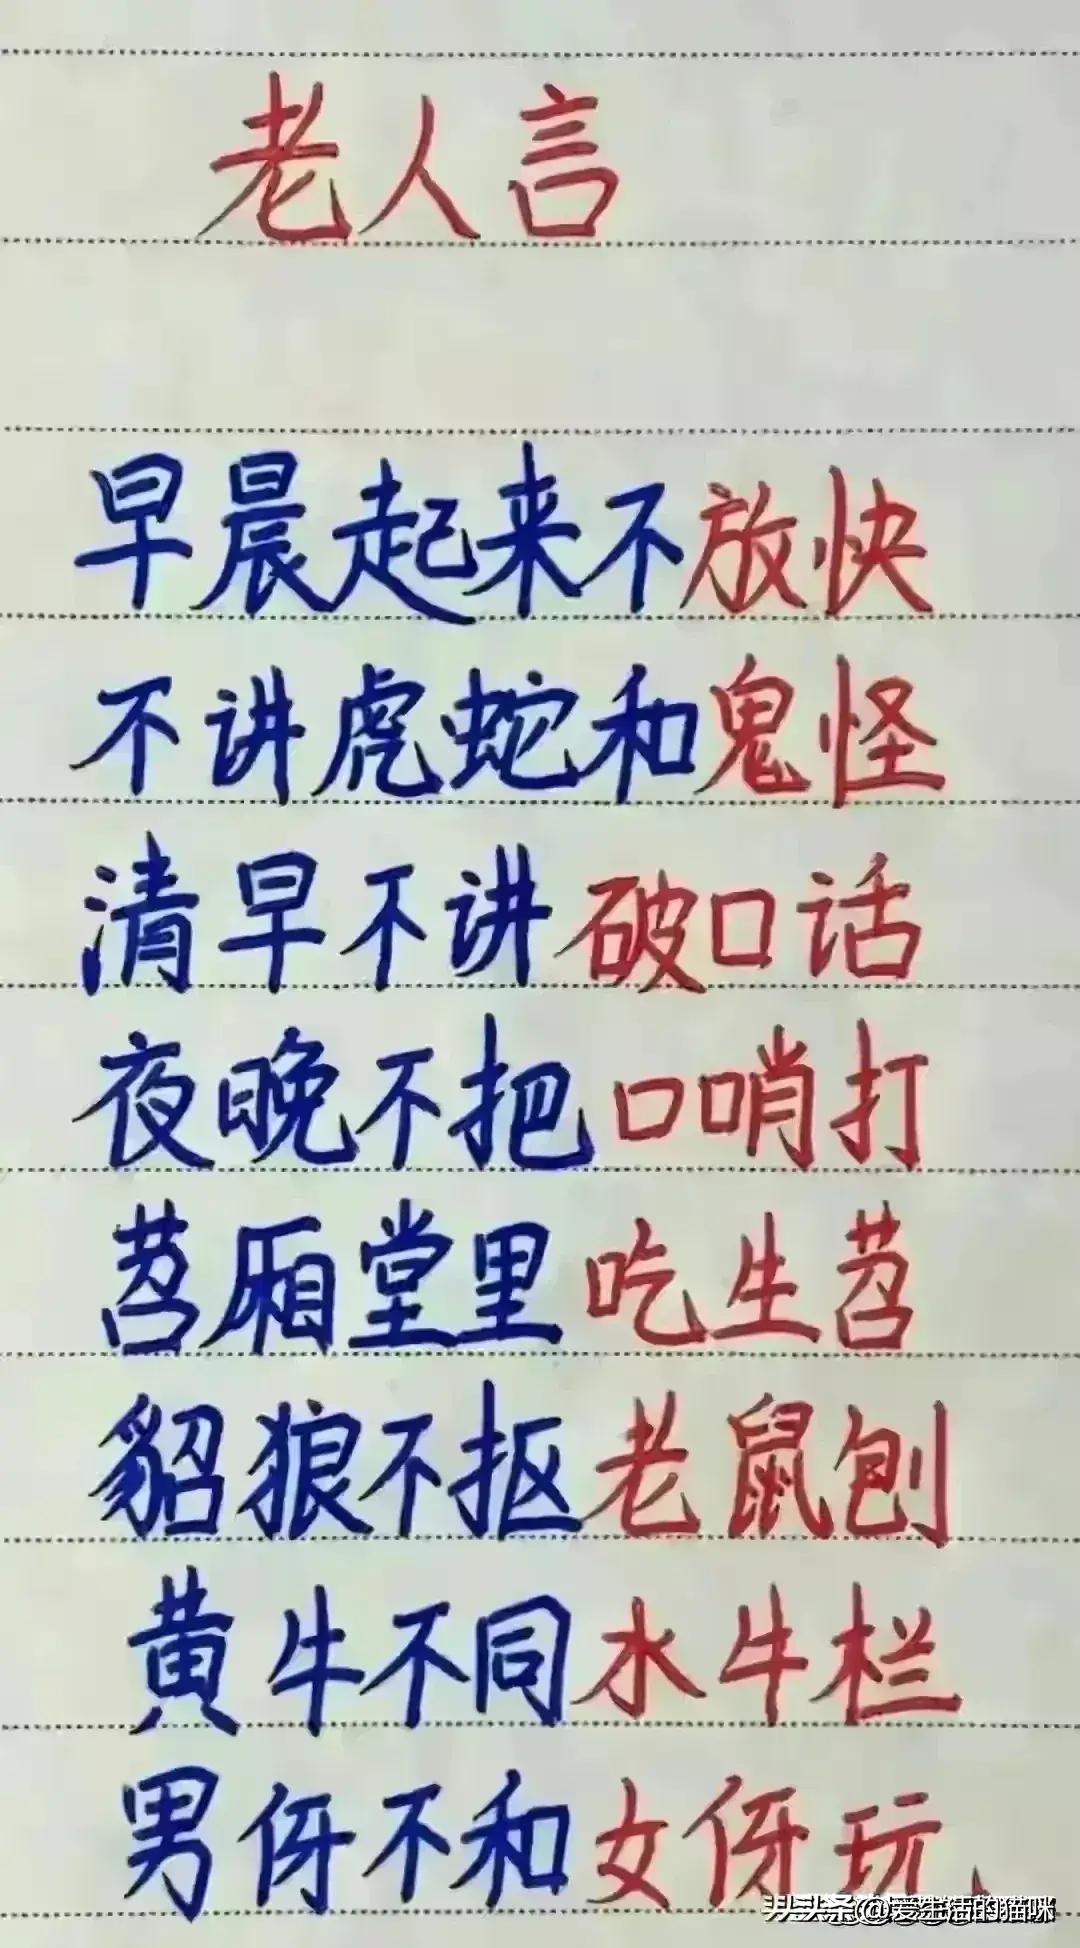 老人言
早晨起来不放快
不讲虎蛇和鬼怪
清早不讲破口话
夜晚不把口哨打
苕厢堂里吃生苕
貂狼不抠老鼠刨
黄牛不同水牛栏
男伢不和女伢玩、
头条@爱生活的猫咪